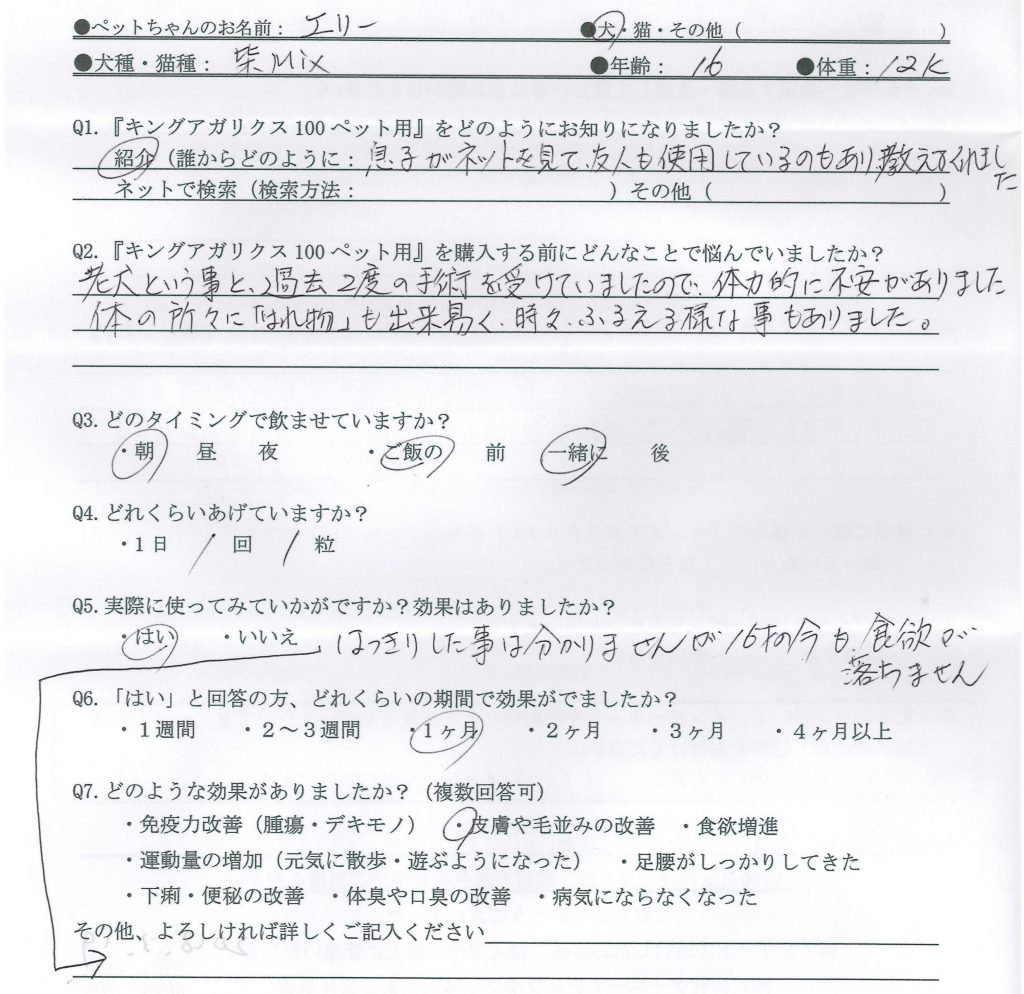 ●ペットちゃんのお名前： エリー ●犬・猫・その他（ ）
●犬種・猫種： 柴Mix ●年齢： 16 ●体重： 12K
Q1.『キングアガリクス100ペット用』をどのようにお知りになりましたか？
紹介（誰からどのように： 息子がネットを見て、友人も使用しているのもあり教えてくれました
ネットで検索（検索方法： ）その他（ ）
Q2.『キングアガリクス100ペット用』を購入する前にどんなことで悩んでいましたか？
老犬という事と、過去2度の手術を受けていましたので、体力的に不安がありました
体の所々に「はれ物」も出来易く、時々、ふるえる様な事もありました。
Q3.どのタイミングで飲ませていますか？
・朝 昼 夜 ・ご飯の 前 一緒に 後
Q4.どれくらいあげていますか？
・1日 1 回 1 粒
Q5.実際に使ってみていかがですか？効果はありましたか？
・はい ・いいえ はっきりした事は分かりませんが16才の今も、食欲が
落ちません
Q6.「はい」と回答の方、どれくらいの期間で効果がでましたか？
・1週間 ・2～3週間 ・1ヶ月 ・2ヶ月 ・3ヶ月 ・4ヶ月以上
Q7.どのような効果がありましたか？（複数回答可）
・免疫力改善（腫瘍・デキモノ） ・皮膚や毛並みの改善 ・食欲増進
・運動量の増加（元気に散歩・遊ぶようになった） ・足腰がしっかりしてきた
・下痢・便秘の改善 ・体臭や口臭の改善 ・病気にならなくなった
その他、よろしければ詳しくご記入ください